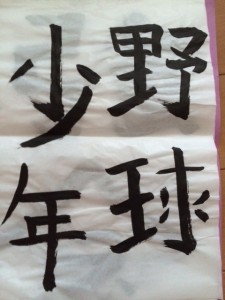 野球
少年